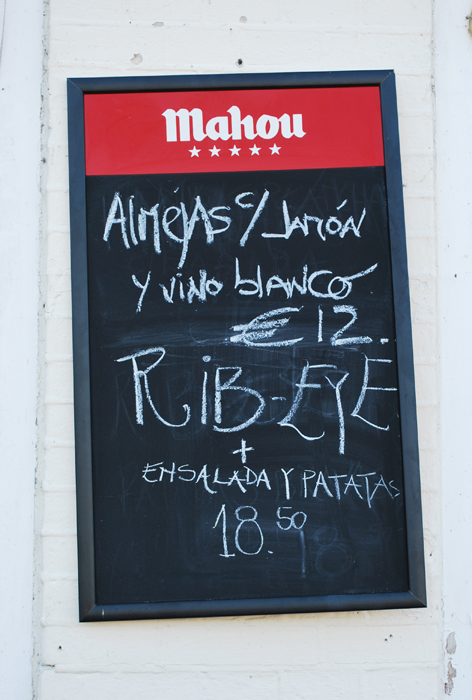 Mahou
Alméjas c/ Jamón
y vino blanco
€ 12.
Rib-Eye
+
ENSALADA Y PATATAS
18.50